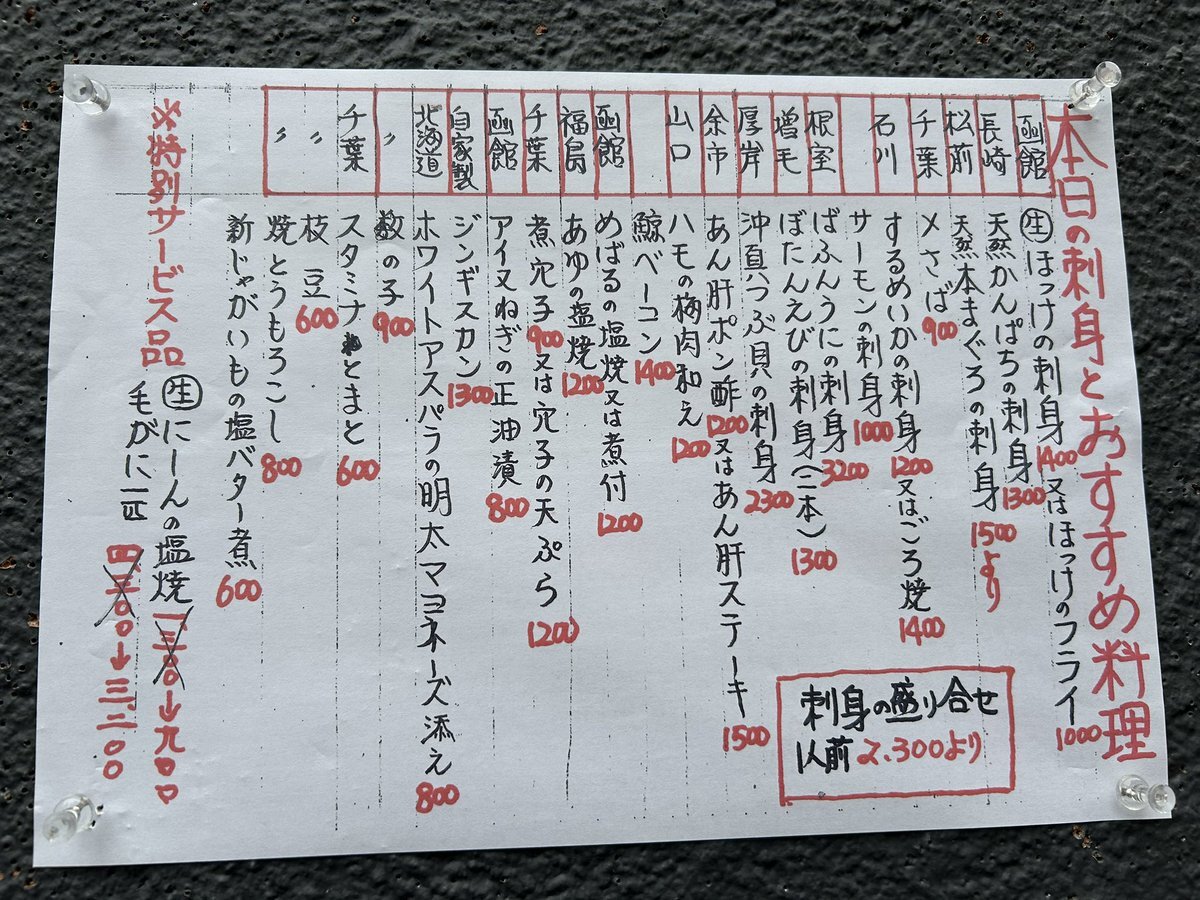 本日の刺身とおすすめ料理
函館 生ほっけの刺身1400又はほっけのフライ1000
長崎 天然かんぱちの刺身1300
松前 天然本まぐろの刺身1500より
千葉 〆さば900
石川 するめいかの刺身1200又はごろ焼1400
サーモンの刺身1000
根室 ばふんうにの刺身3200
増毛 ぼたんえびの刺身(二本)1300
厚岸 沖真つぶ貝の刺身2300
余市 あん肝ポン酢1200又はあん肝ステーキ1500
山口 ハモの梅肉和え1200
鯨ベーコン1400
函館 めばるの塩焼又は煮付1200
福島 あゆの塩焼1200
千葉 煮穴子900又は穴子の天ぷら1200
函館 アイヌねぎの正油漬800
自家製 ジンギスカン1300
北海道 ホワイトアスパラの明太マヨネーズ添え800
〃 数の子900
千葉 スタミナとまと600
〃 枝豆600
〃 焼とうもろこし800
新じゃがいもの塩バター煮600
※特別サービス品
生にしんの塩焼 一三〇〇→九〇〇
毛がに一匹 →三二〇〇
刺身の盛り合せ
1人前2.300より